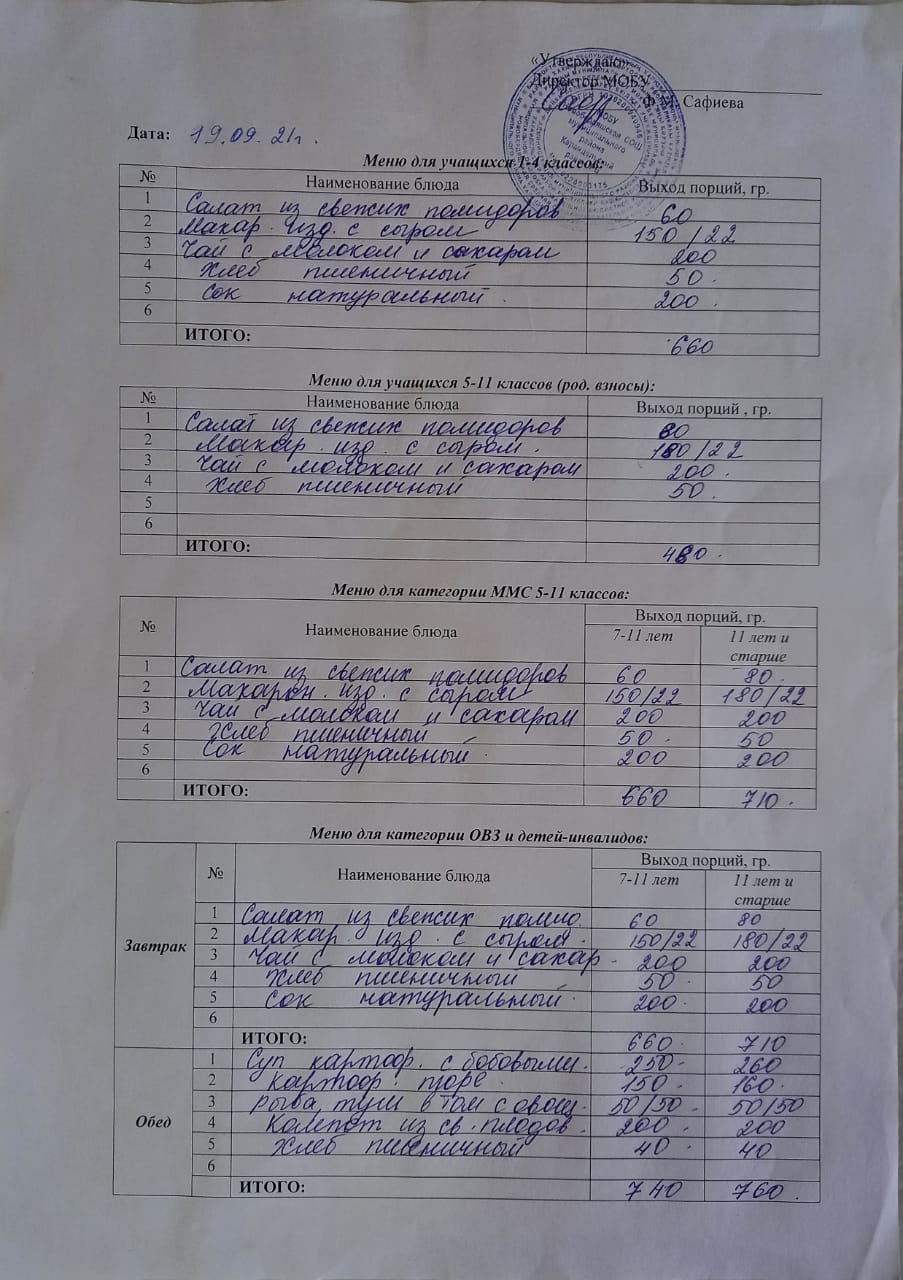 «Утверждаю»
Директор МОБУ
Ф. Сафиева
Дата: 19.09.21г.
Меню для учащихся 1-4 классов:
№ Наименование блюда Выход порций, гр.
1 Салат из свежих помидоров 60
2 Макар. изд. с сыром 150/22
3 Чай с молоком и сахаром 200
4 Хлеб пшеничный 50.
5 Сок натуральный. 200.
6
ИТОГО: 660
Меню для учащихся 5-11 классов (род. взносы):
№ Наименование блюда Выход порций , гр.
1 Салат из свежих помидоров 80
2 Макар. изд. с сыром. 180/22
3 Чай с молоком и сахаром 200.
4 Хлеб пшеничный 50.
5
6
ИТОГО: 480.
Меню для категории ММС 5-11 классов:
№ Наименование блюда Выход порций, гр.
7-11 лет 11 лет и старше
1 Салат из свежих помидоров 60 80.
2 Макарон. изд. с сыром 150/22 180/22
3 Чай с молоком и сахаром 200 200
4 Хлеб пшеничный 50. 50
5 Сок натуральный. 200 200
6
ИТОГО: 660 710.
Меню для категории ОВЗ и детей-инвалидов:
№ Наименование блюда Выход порций, гр.
7-11 лет 11 лет и старше
Завтрак
1 Салат из свежих помид. 60 80
2 Макар. изд. с сыром. 150/22 180/22
3 Чай с молоком и сахар- 200 200
4 Хлеб пшеничный 50. 50
5 Сок натуральный. 200. 200
6
ИТОГО: 660. 710
Обед
1 Суп картоф. с бобовыми. 250- 260
2 Картоф. пюре 150. 160.
3 Рыба туш в том с овощ- 50/50. 50/50
4 Компот из св. плодов. 200. 200
5 Хлеб пшеничный 40. 40
6
ИТОГО: 740 760.